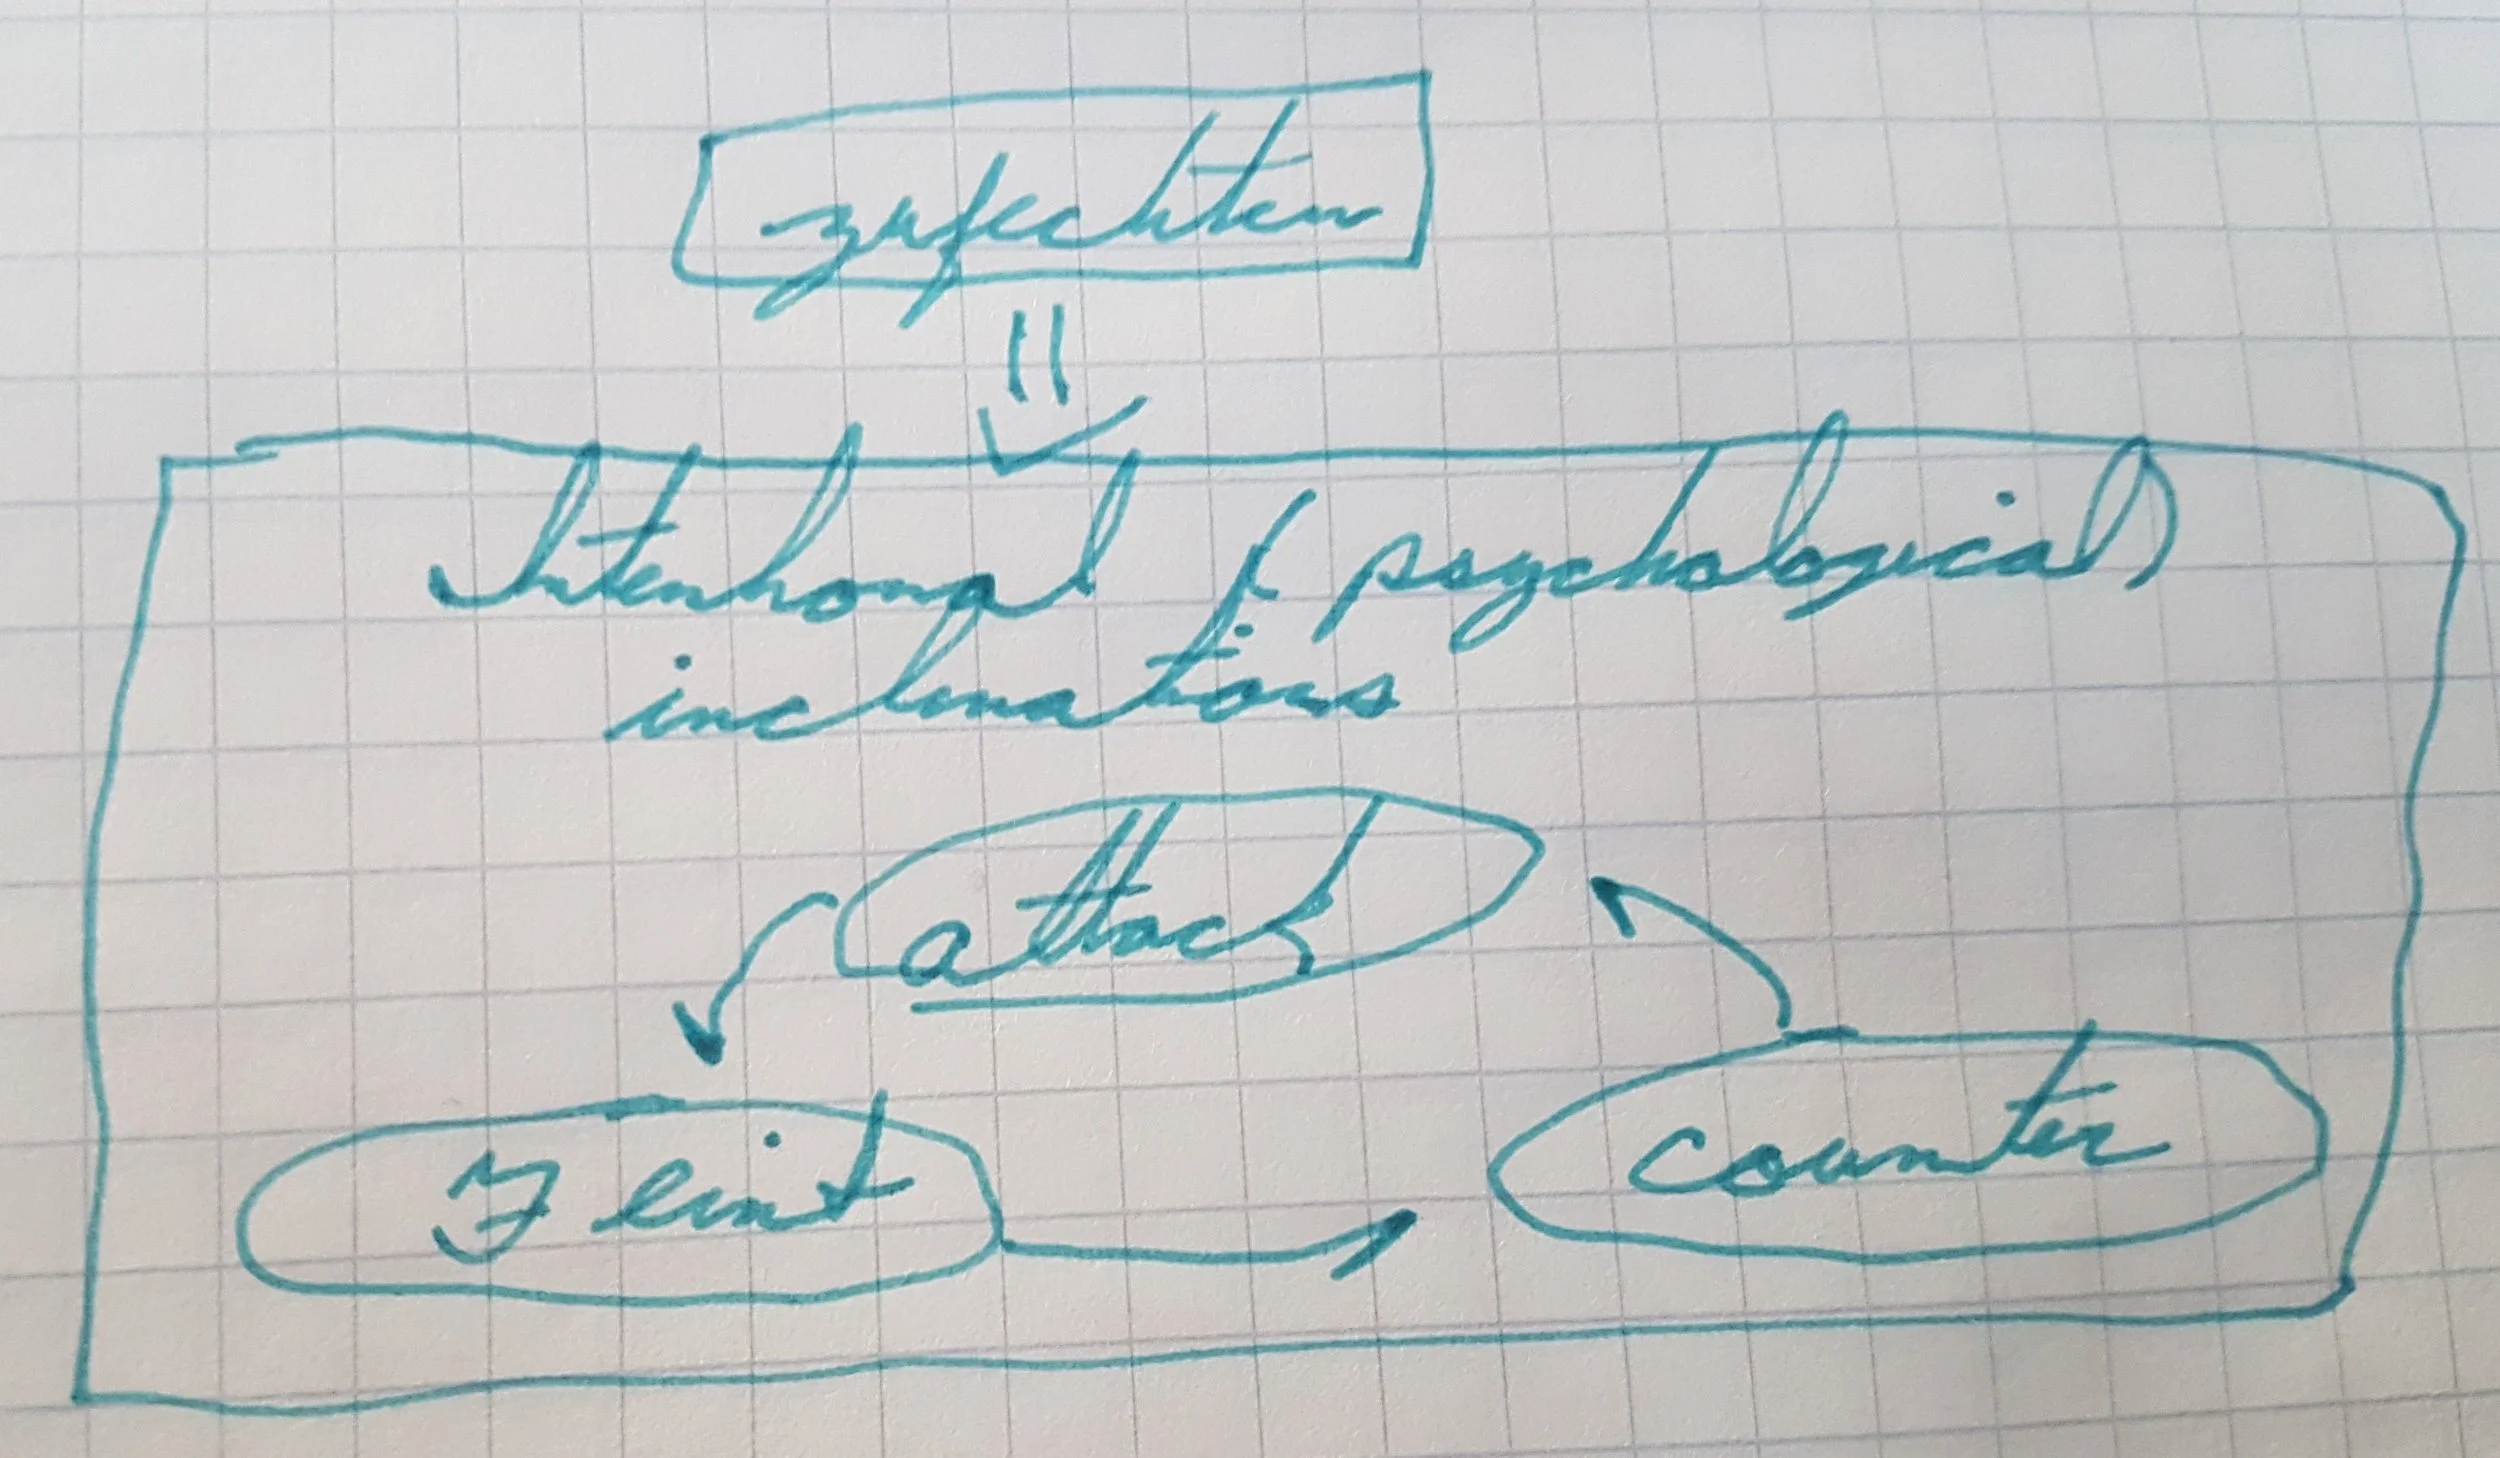 zufechten
Intentional & psychological
inclinations
attack
Feint
counter